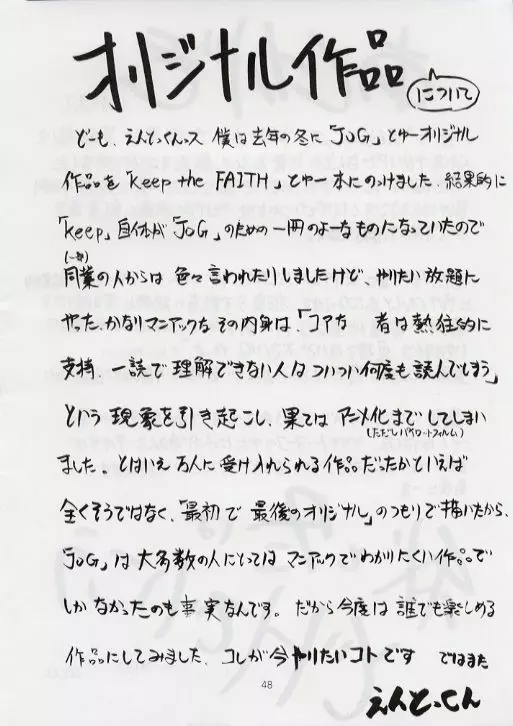 オリジナル作品
について
どーも、えんとっくんっス 僕は去年の冬に「JoG」とゆーオリジナル
作品を「keep the FAITH」とゆー本にのっけました、結果的に
「keep」自体が「JoG」のための一冊のよーなものになっていたので
(一部)
同業の人からは 色々言われたりしましたけど、やりたい放題に
やった、かなりマニアックな その内身は、「コアな 者は熱狂的に
支持、一読で理解できない人はついつい何度も読んでしまう」
という 現象を引き起こし、果ては アニメ化までしてしまい
(ただしパイロットフィルム)
ました。とはいえ 万人に受け入れられる作品だったかといえば
全くそうではなく、「最初で 最後のオリジナル」のつもりで描いたから、
「JoG」は大多数の人にとっては マニアックでわかりにくい作品で
しかなかったのも事実なんです。だから今度は 誰でも楽しめる
作品にしてみました、コレが今やりたいコトです ではまた
48
えんとっくん